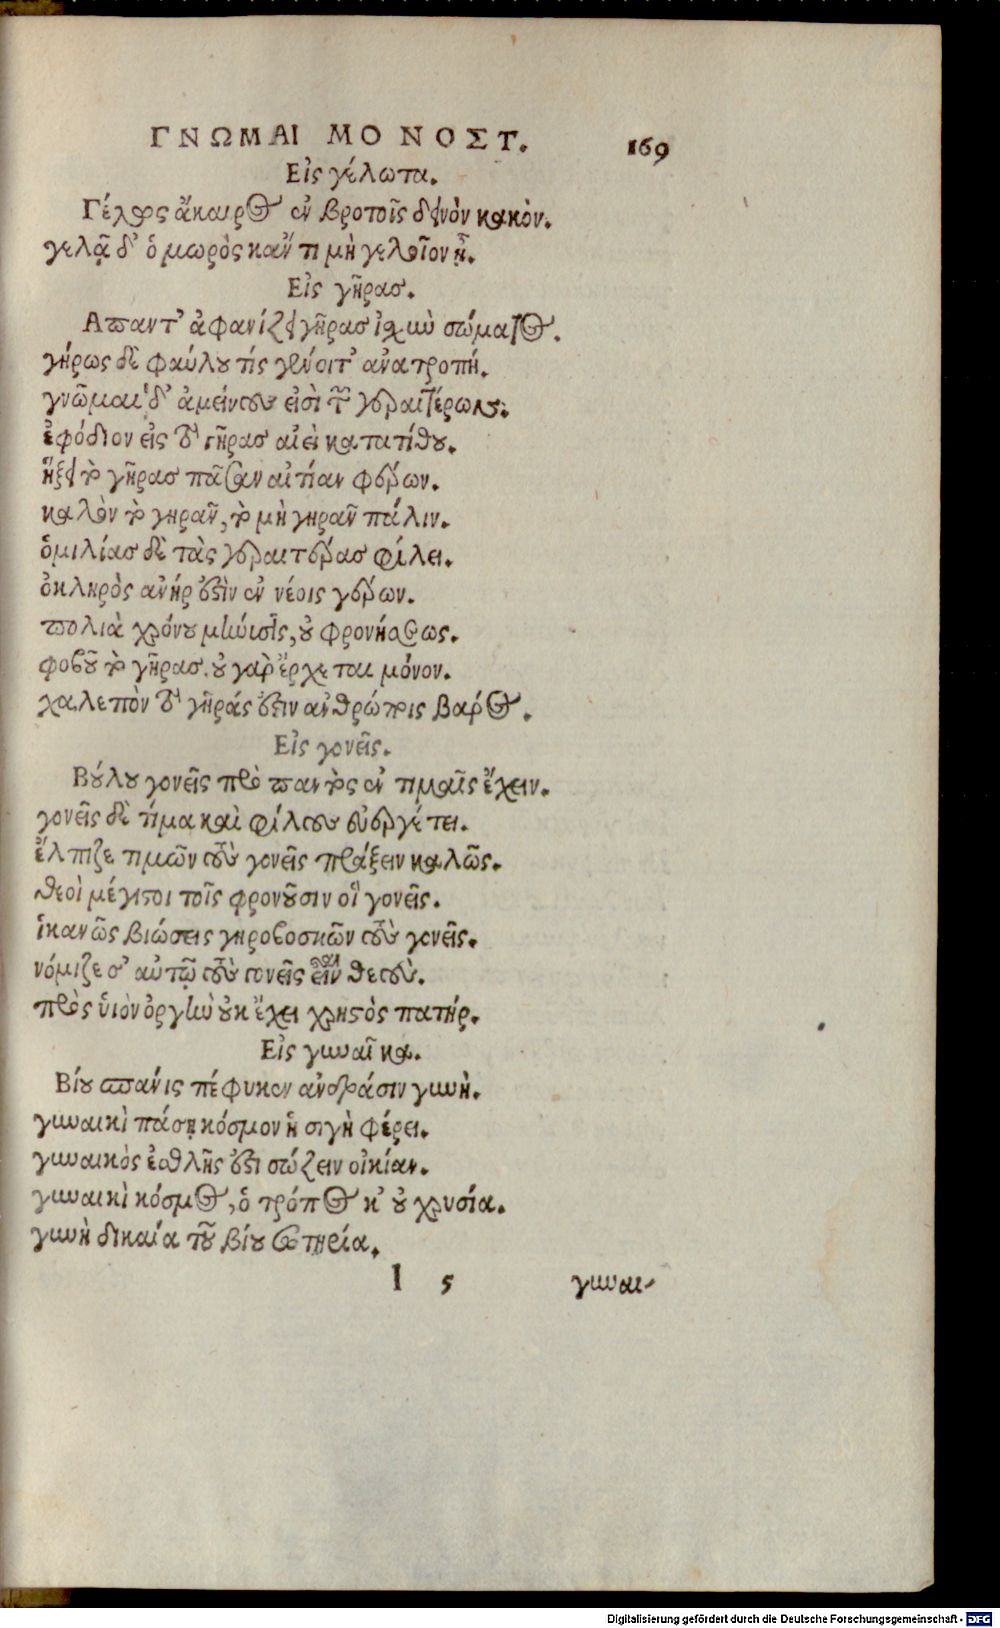 ΓΝΩΜΑΙ ΜΟΝΟΣΤ. 169
Εἰς γέλωτα.
Γέλως ἄκαιρος ἐν βροτοῖς δεινὸν κακὸν.
γελᾷ δ' ὁ μωρὸς κἄν τι μὴ γελοῖον ᾖ.
Εἰς γῆρας.
Απαντ' ἀφανίζει γῆρας ἰσχὺν σώματος.
γήρως δὲ φαύλου τίς γένοιτ' ἀνατροπή.
γνῶμαι δ' ἀμείνους εἰσὶ τῶν γεραιτέρων.
ἐφόδιον εἰς τὸ γῆρας αἰεὶ κατατίθου.
ἥξει τὸ γῆρας πᾶσαν αἰτίαν φέρων.
καλὸν τὸ γηρᾶν, τὸ μὴ γηρᾶν πάλιν.
ὁμιλίας δὲ τὰς γεραιτέρας φίλει.
ὀκληρὸς ἀνήρ ἐστὶν ἐν νέοις γέρων.
πολιὰ χρόνου μήνυσις, οὐ φρονήσεως.
φοβοῦ τὸ γῆρας. οὐ γὰρ ἔρχεται μόνον.
χαλεπὸν τὸ γῆράς ἐστιν ἀνθρώποις βάρος.
Εἰς γονεῖς.
Βούλου γονεῖς πρὸ παντὸς ἐν τιμαῖς ἔχειν.
γονεῖς δὲ τίμα καὶ φίλους εὐεργέτει.
ἔλπιζε τιμῶν τοὺς γονεῖς πράξειν καλῶς.
θεοὶ μέγιστοι τοῖς φρονοῦσιν οἱ γονεῖς.
ἱκανῶς βιώσεις γηροβοσκῶν τοὺς γονεῖς.
νόμιζε σ' αὐτῷ τοὺς γονεῖς εἶναι θεούς.
πρὸς ὑιὸν ὀργὴν οὐκ ἔχει χρηστὸς πατήρ.
Εἰς γυναῖκα.
Βίου σπάνις πέφυκεν ἀνδράσιν γυνὴ.
γυναικὶ πάσῃ κόσμον ἡ σιγὴ φέρει.
γυναικὸς ἐσθλῆς ἐστι σώζειν οἰκίαν.
γυναικὶ κόσμος, ὁ τρόπος κ' οὐ χρυσία.
γυνὴ δικαία τοῦ βίου σωτηρία.
l 5 γυναι-
Digitalisierung gefördert durch die Deutsche Forschungsgemeinschaft - DFG